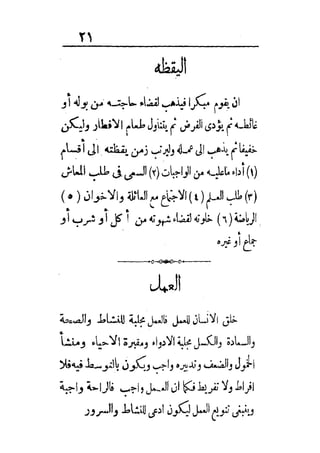 ٢١
اليقظه
ان يقوم مبكرا فيذهب لقضاء حاجته من بوله أو
غائطه ثم يؤدى الفرض ثم يتناول طعام الافطار وليكن
خفيفا ثم يذهب الى عمله وليرتب زمن يقظته الى أقسام
(١) أداء ما عليه من الواجبات (٢) السعى فى طلب المعاش
(٣) طلب العلم (٤) الاجتماع مع العائلة والاخوان (٥)
الرياضة (٦) خلوته لقضاء شهوته من أكل أو شرب أو
جماع أو غيره
العمل
خلق الانسان للعمل فالعمل مجلبة للنشاط والصحة
والسعادة والكسل مجلبة الادواء ومقبرة الاحياء ومنشأ
الخمول والضعف وتدبيره واجب ويكون بالتوسط فيه فلا
افراط ولا تفريط فكما ان العمل واجب فالراحة واجبة
وينبغى تنويع العمل ليكون ادعى للنشاط والسرور